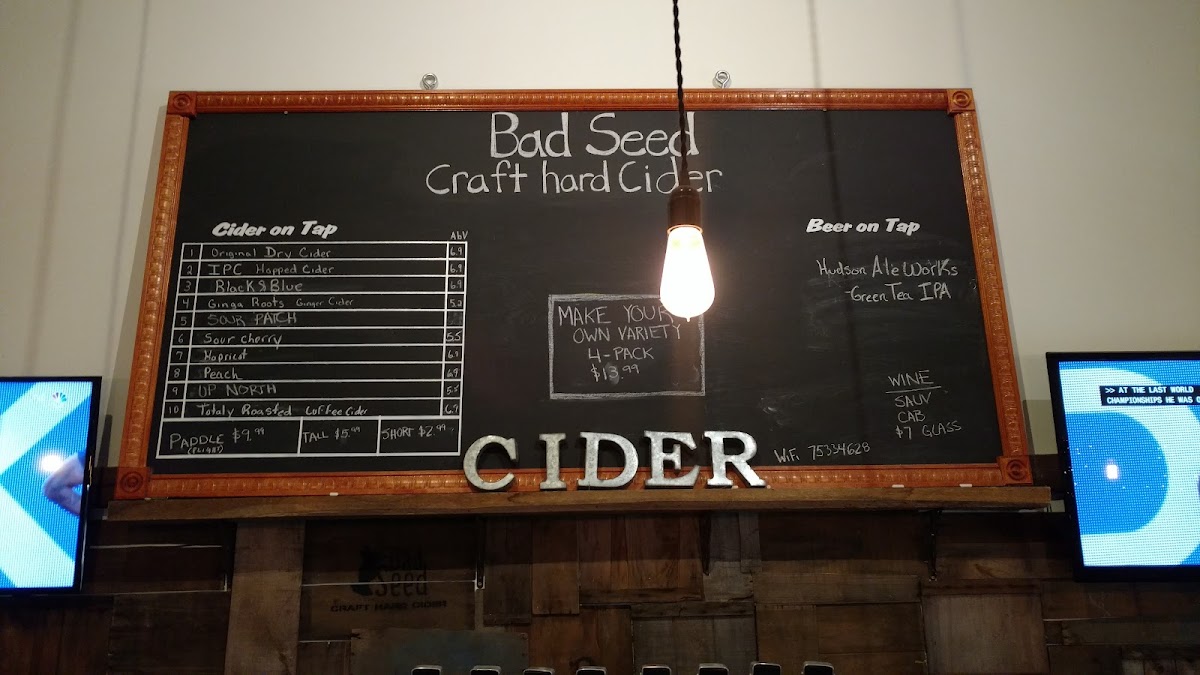 Bad Seed
Craft hard Cider
Cider on Tap
AbV
1 Original Dry Cider 6.9
2 IPC Hopped Cider 6.9
3 Black & Blue 6.9
4 Ginga Roots Ginger Cider 5.2
5 SOUR PATCH
6 Sour cherry 5.5
7 Hopricot 6.9
8 Peach 6.9
9 UP NORTH 5.5
10 Totaly Roasted Coffee Cider 6.9
PADDLE $9.99
(FLIGHT)
TALL $5.99
SHORT $2.99
MAKE YOUR
OWN VARIETY
4-PACK
$13.99
Beer on Tap
Hudson Ale Works
-Green Tea IPA
WINE
SAUV
CAB
$7 GLASS
WiFi 75334628
CIDER
>> AT THE LAST WORLD
CHAMPIONSHIPS HE WAS
Bad
Seed
CRAFT HARD CIDER